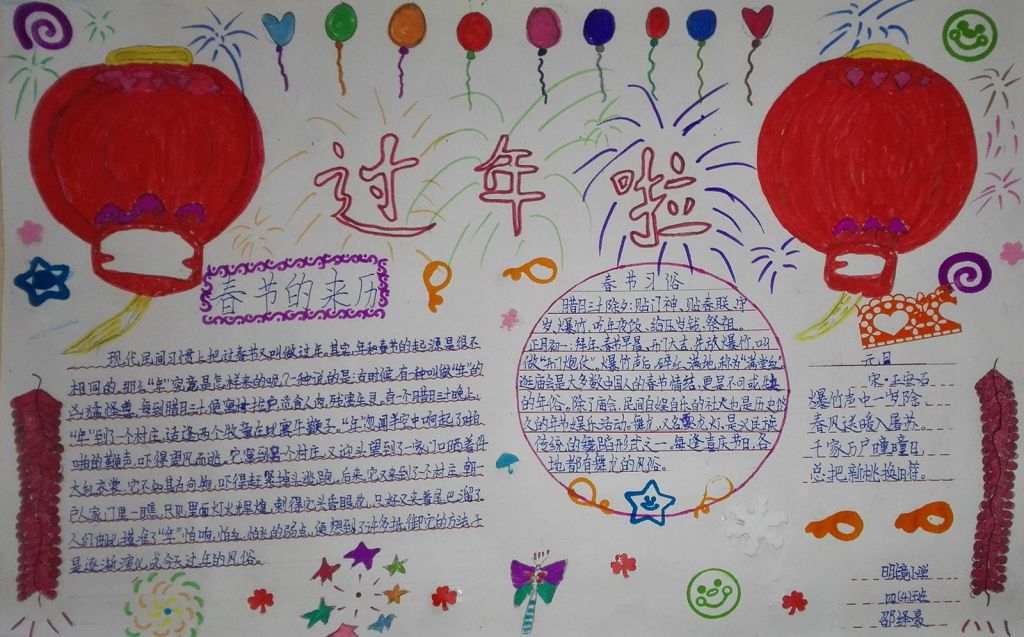 过年啦
春节的来历
现代民间习惯上把过春节又叫做过年。其实,年和春节的起源是很不
相同的。那么“年”究竟是怎样来的呢?一种说的是:古时候,有种叫做“年”的
凶猛怪兽,每到腊月三十,便窜村挨户,觅食人肉,残害生灵。有一个腊月三十晚上,
“年”到了一个村庄,适逢两个牧童在比赛牛鞭子。“年”忽闻半空中响起了啪
啪的鞭声,吓得望风而逃。它窜到另一个村庄,又迎头望到了一家门口晒着件
大红衣裳,它不知其为何物,吓得赶紧掉头逃跑。后来它又来到了一个村庄,朝一
户人家门里一瞧,只见里面灯火辉煌,刺得它头昏眼花,只好又夹着尾巴溜了
人们由此摸准了“年”怕响,怕红,怕光的弱点,便想到了许多抵御它的方法,于
是逐渐演化成今天过年的风俗。
春节习俗
腊月三十除夕:贴门神、贴春联、守
岁、爆竹、吃年夜饭、给压岁钱、祭祖。
正月初一:拜年、春节早晨,开门大吉,先放爆竹,叫
做“开门炮仗”。爆竹声后,碎红满地,称为“满堂红”
逛庙会是大多数中国人的春节情结,更是不可或缺
的年俗。除了庙会,民间自娱自乐的社火也是历史悠
久的年节娱乐活动。舞龙,又名耍龙灯,是汉民族
传统的舞蹈形式之一。每逢喜庆节日,各
地都有舞龙的风俗。
元日
宋·王安石
爆竹声中一岁除,
春风送暖入屠苏。
千家万户曈曈日,
总把新桃换旧符。
明镜小学
四(4)班
邵绎豪